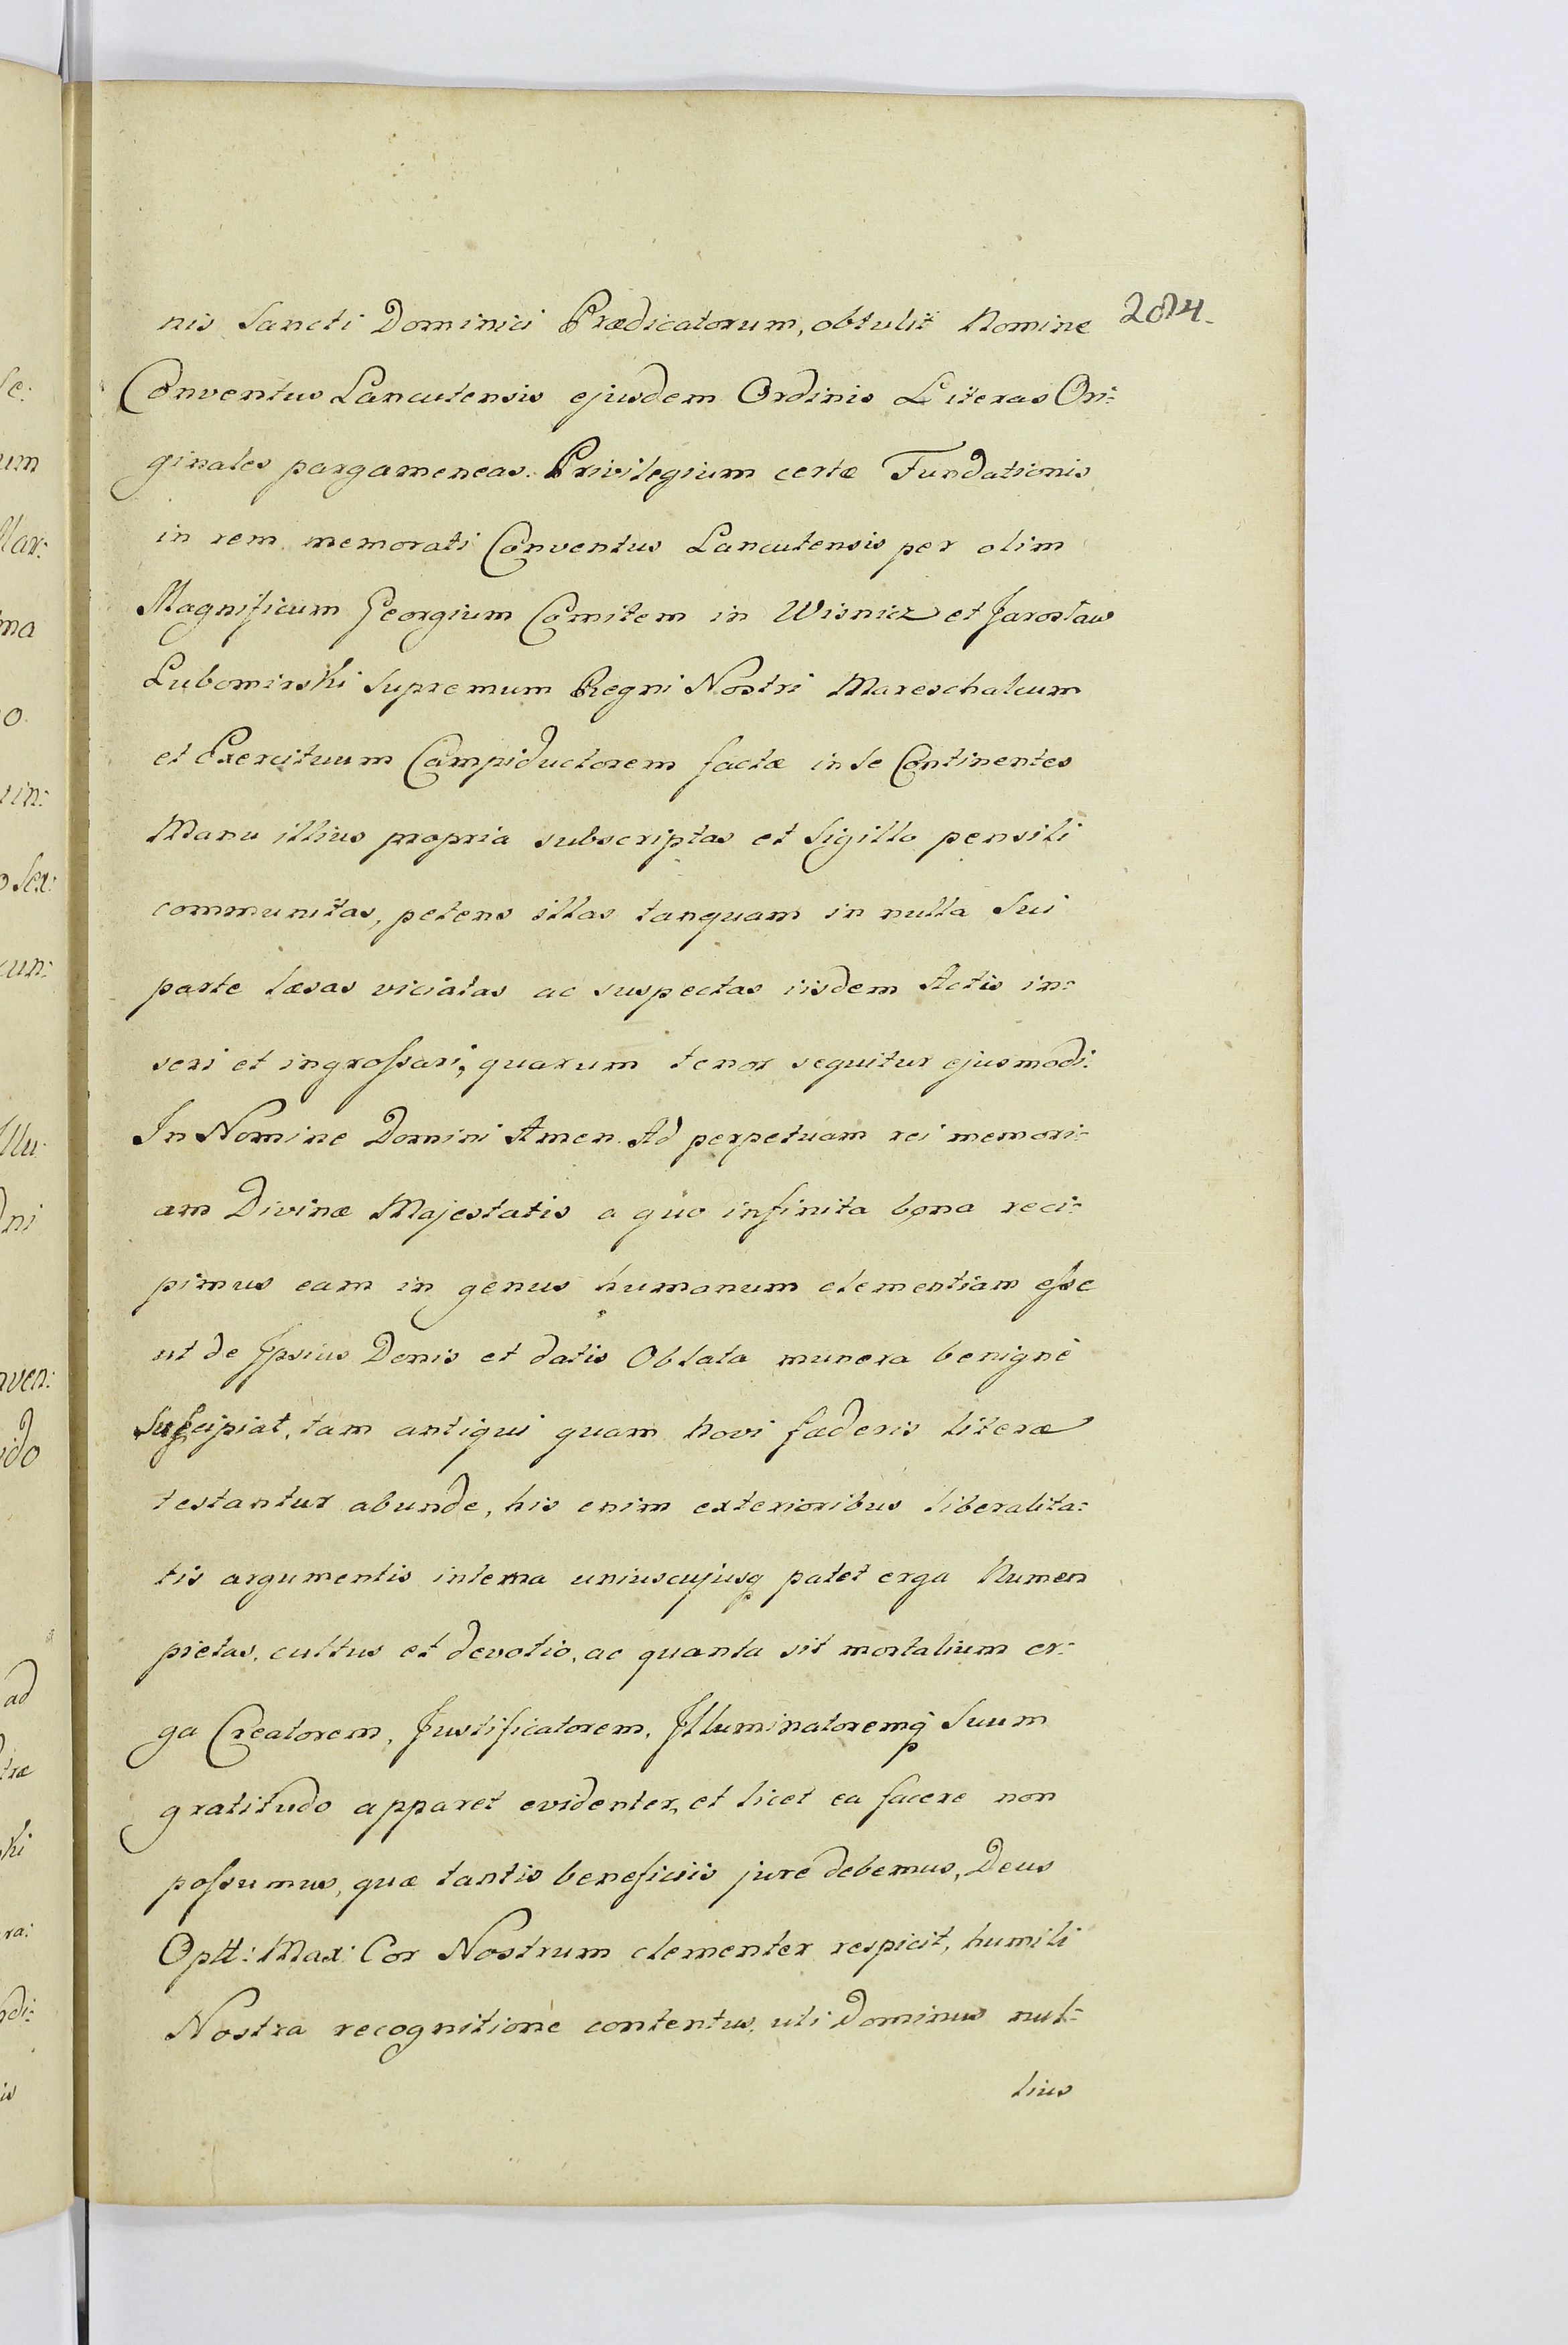 nis Sancti Dominici Prædicatorum, obtulit Nomine
Conventus Lancutensis ejusdem Ordinis Literas Ori:
ginales pargameneas. Privilegium certæ Fundationis
in rem memorati Conventus Lancutensis per olim
Magnificum Georgium Comitem in Wisnicz et Jarosław
Lubomirski Supremum Regni Nostri Mareschalcum
et Exercituum Campiductorem factæ in se Continentes
Manu illius propria subscriptas et Sigillo pensili
communitas, petens illas tanquam in nulla Sui
parte læsas viciatas ac suspectas iisdem Actis in:
seri et ingrossari, quarum tenor sequitur ejusmodi.
In Nomine Domini Amen. Ad perpetuam rei memori:
am Divinæ Majestatis a quo infinita bona reci:
pimus eam in genus humanum clementiam esse
ut de Ipsius Donis et datis Oblata munera benignè
Suscipiat, tam antiqui quam Novi fæderis literæ
testantur abunde, his enim exterioribus liberalita:
tis argumentis interna uniuscujusq patet erga Numen
pietas, cultus et devotio, ac quanta sit mortalium er:
ga Creatorem, Justificatorem, Illuminatoremq Suum
gratitudo apparet evidenter, et licet ea facere non
possumus, quæ tantis beneficiis jure debemus, Deus
Optt: Max: Cor Nostrum clementer respicit, humili
Nostra recognitione contentus, uti Dominus nul:
lius